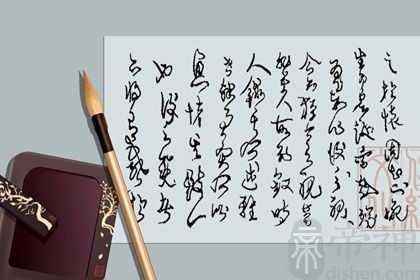 之於懷固知一死
生為虛誕齊彭殤
為妄作後之視
今亦猶今之視昔
悲夫故列敘時
人錄其所述雖
世殊事異所以
興懷其致一也
後之覽者
亦將有感於斯
帝神
dishen.com